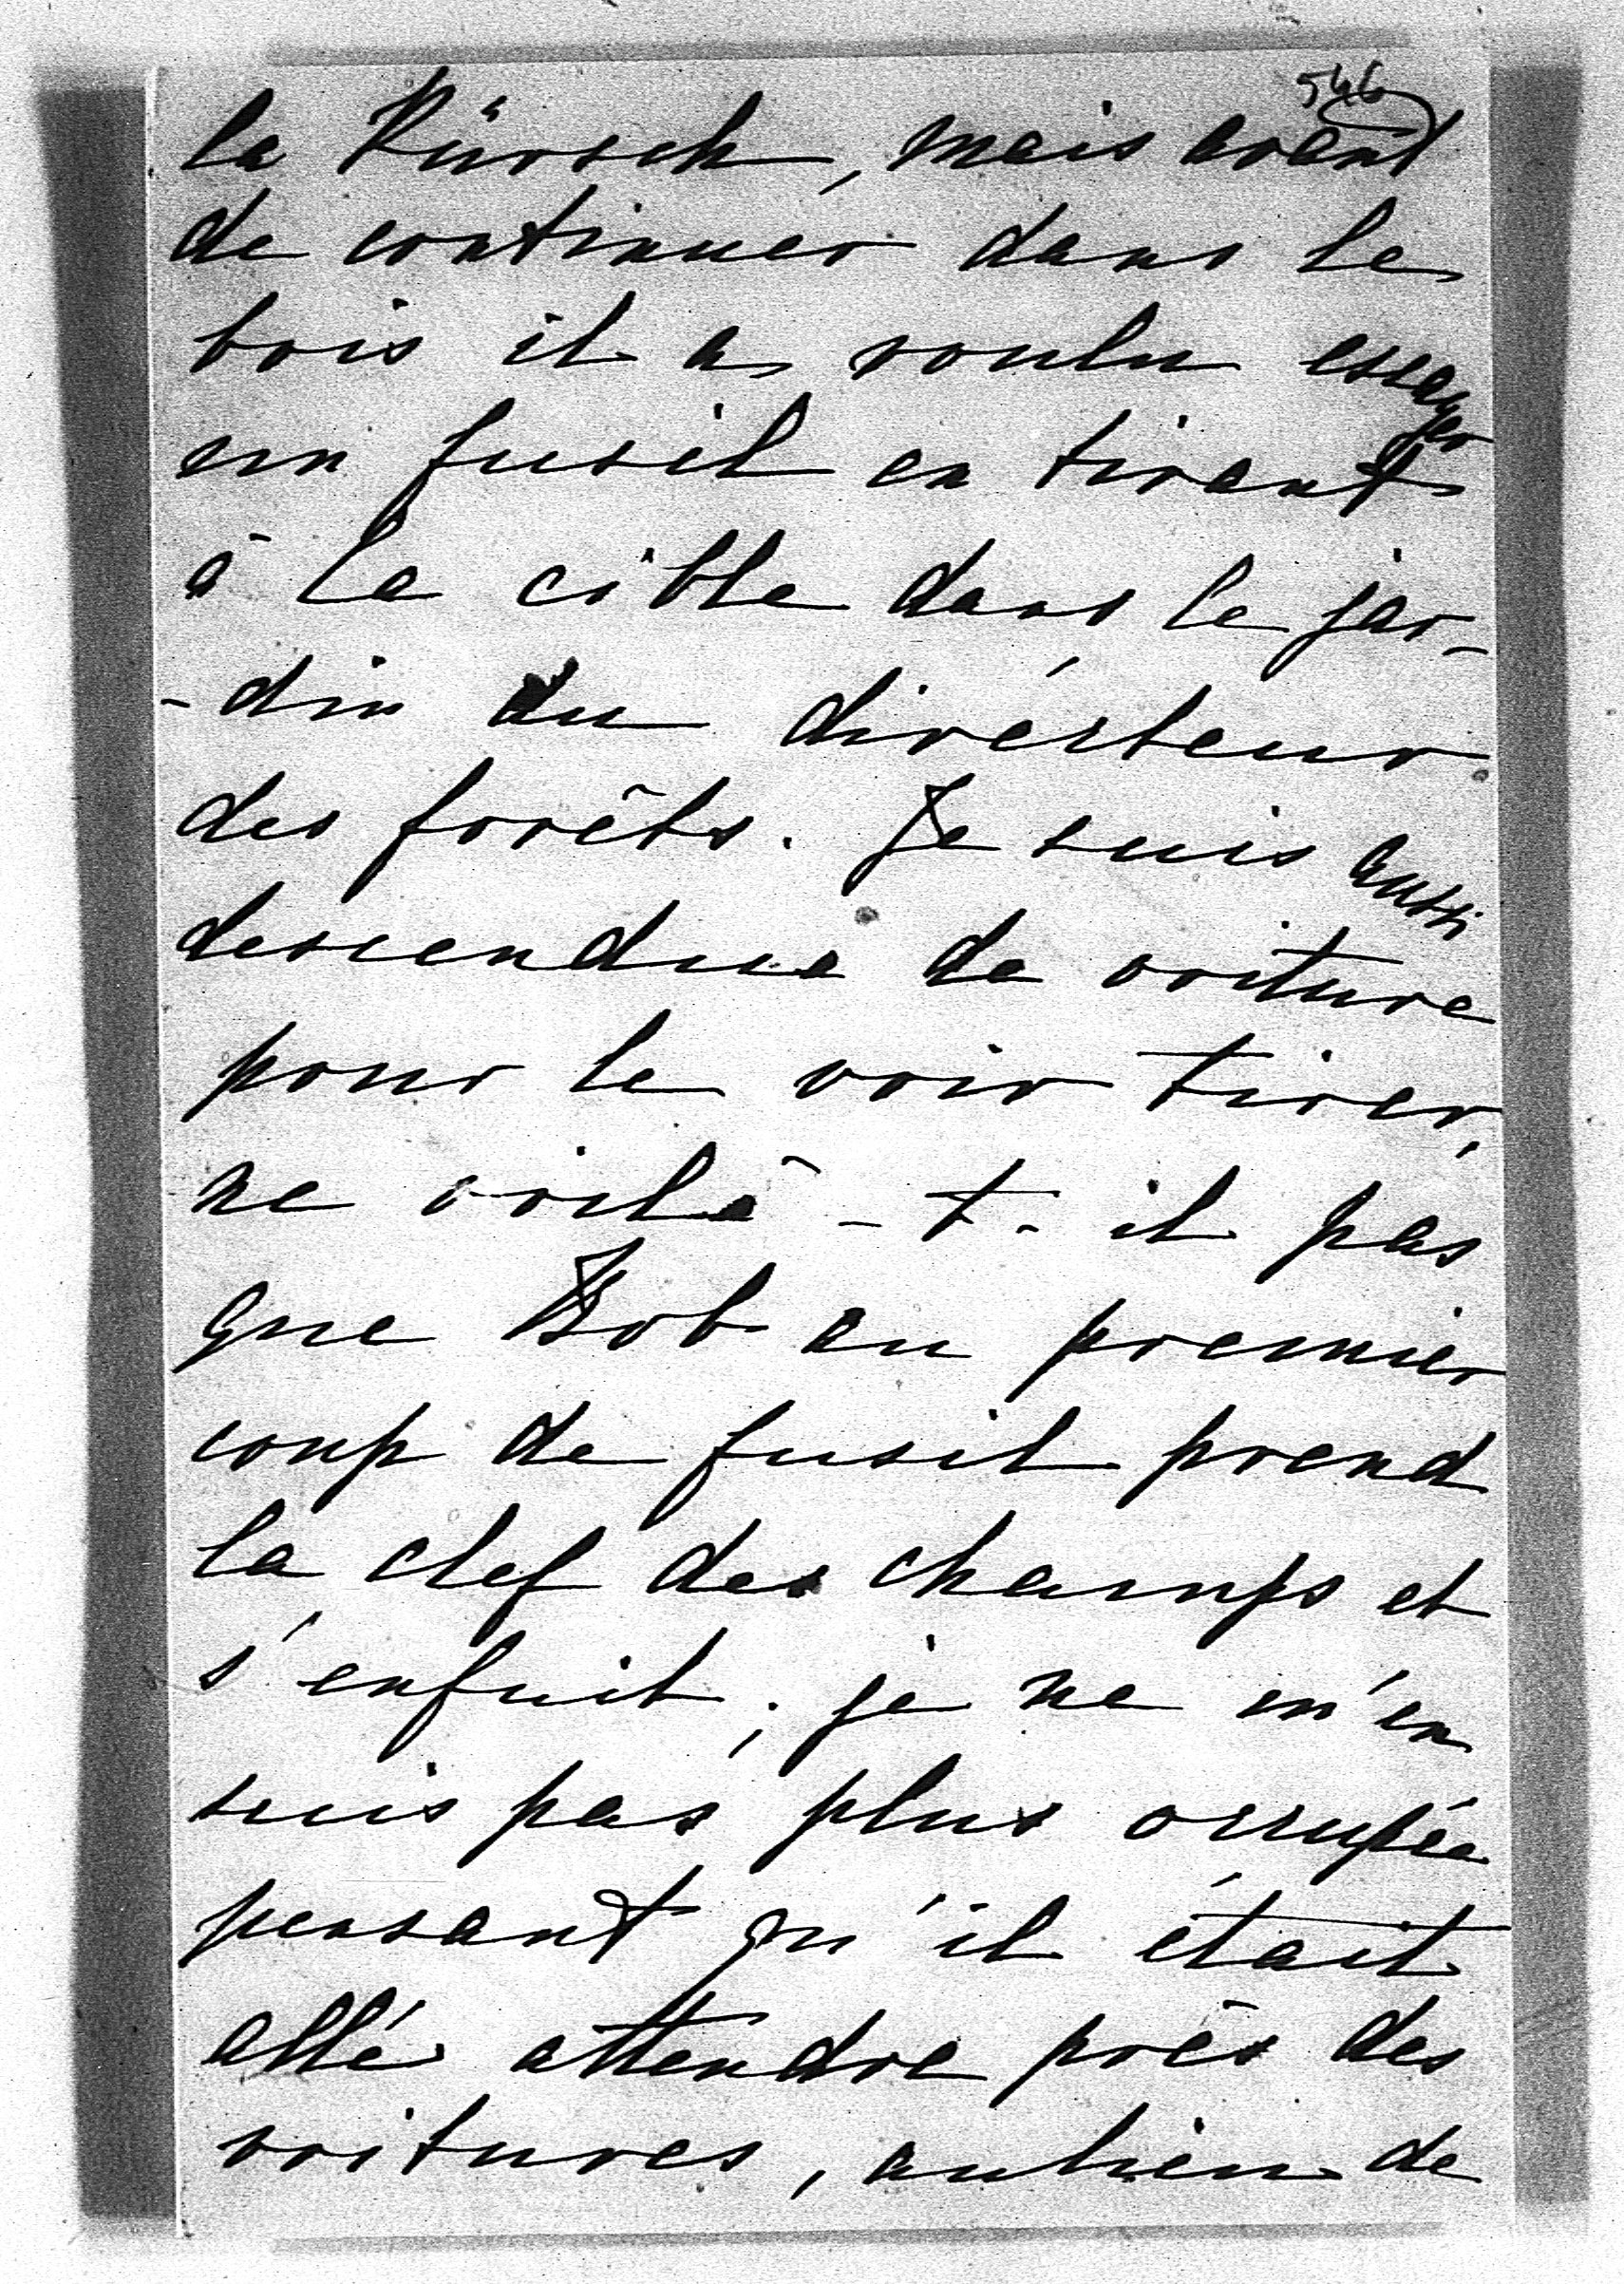 546
la Pürsch, mais avant
de continuer dans le
bois il a voulu essayer
un fusil en tirant
à la cible dans le jar-
-din du directeur
des forêts. Je suis aussi
descendue de voiture
pour le voir tirer,
ne voilà-t-il pas
que Bob au premier
coup de fusil prend
la clef des champs et
s'enfuit; je ne m'en
suis pas plus occupée
pensant qu'il était
allé attendre près des
voitures, au lieu de